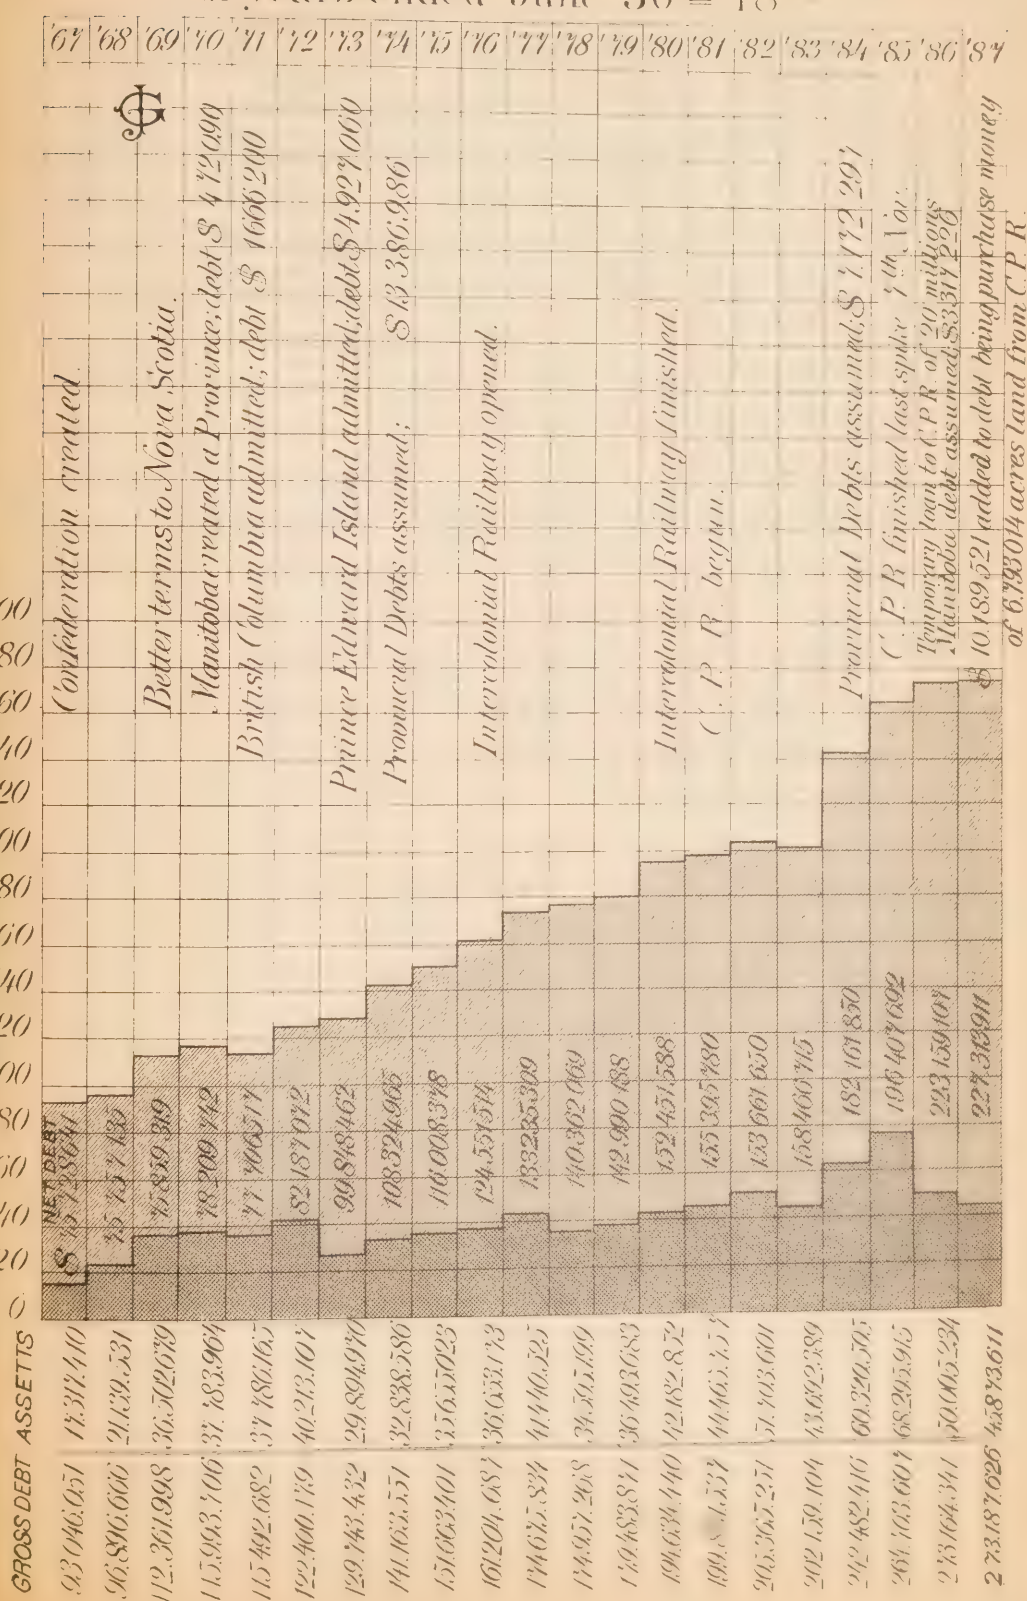 '67 '68 '69 '70 '71 '72 '73 '74 '75 '76 '77 '78 '79 '80 '81 '82 '83 '84 '85 '86 '87
Confederation created.
Better terms to Nova Scotia.
Manitoba created a Province; debt $ 472090
British Columbia admitted; debt $ 1666200
Prince Edward Island admitted; debt $ 4.927.060
Provincial Debts assumed; $ 13.386.986
Intercolonial Railway opened.
Intercolonial Railway finished.
C. P. R. begun.
Provincial Debts assumed; $ 7.172.297
C. P. R finished last spike 7th Nov.
Temporary loan to C P R of 20 millions
Manitoba debt assumed; $3317226
$ 10.189.521 added to debt being purchase money
of 6.793.014 acres land from C. P. R
00
80
60
40
20
00
80
60
40
20
00
80
60
40
20
0
NET DEBT
$ 75 728641
75 757 135
75859319
78 209 742
77 706517
82187072
99848462
108324965
116008378
124551514
133235309
140362069
142990188
152451588
155395780
153661650
158466715
182 161 850
196407692
223 159107
227.313911
GROSS DEBT ASSETTS
93.046.051 17.317.410
96.896.666 21.139.531
112.361.998 36.502.679
115.993.706 37.783.964
115.492.682 37 786.165
122.400.179 40.213.107
129.743.432 29.894.970
141.163.551 32.838.586
151.663.401 35.655.023
161.204.687 36.653.173
174.675.834 41.440.525
174.957.268 34.595.199
179.483.871 36.493.683
194.634.440 42.182.852
205.365.251 51.703.601
202 159.104 43.692.389
242 482 416 60.320.565
264 703.607 68.295.915
273 164.341 50.005.234
273.187.626 45.873.611